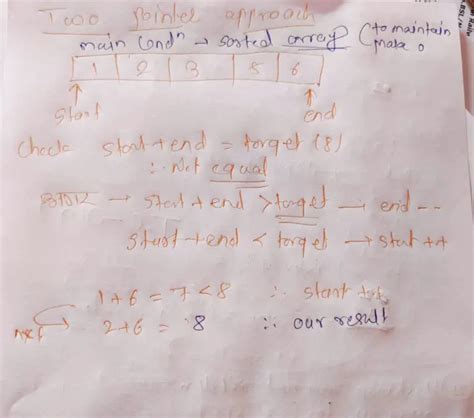 Two pointer approach
main Condⁿ → sorted array (to maintain
make o
1 2 3 5 6
start end
Check start+end = target (8)
∴ Not equal
→ start + end > target → end --
start + end < target → start ++
1+6 = 7 < 8 ∴ start ++
next 2+6 = 8 ∴ our result